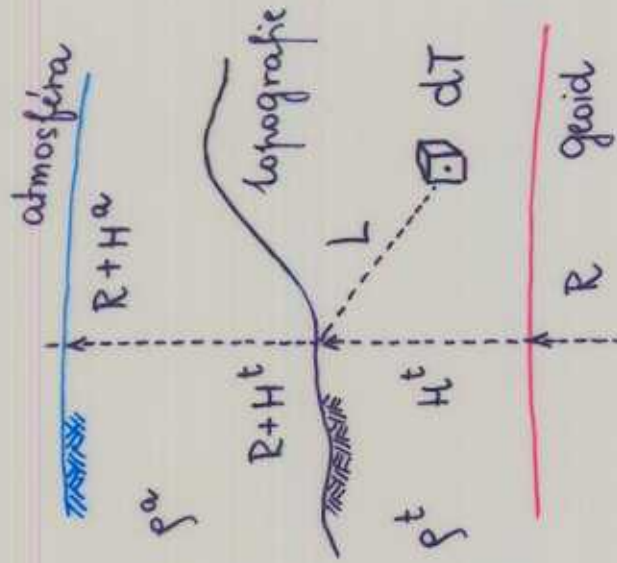 atmosféra
R + Hᵃ
ρᵃ
topografie
R + Hᵗ
L
ρᵗ
Hᵗ
dT
R
geoid